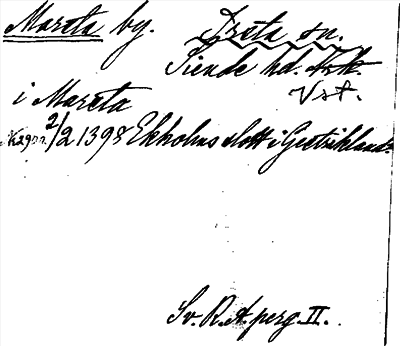 Mareta by. Dreta sn.
Siende hd. Ark.
Vst.
i Mareta
N:2900. 2/2 1398 Ekholms slott i Gestrikland.
Sv. R.A. perg. II.